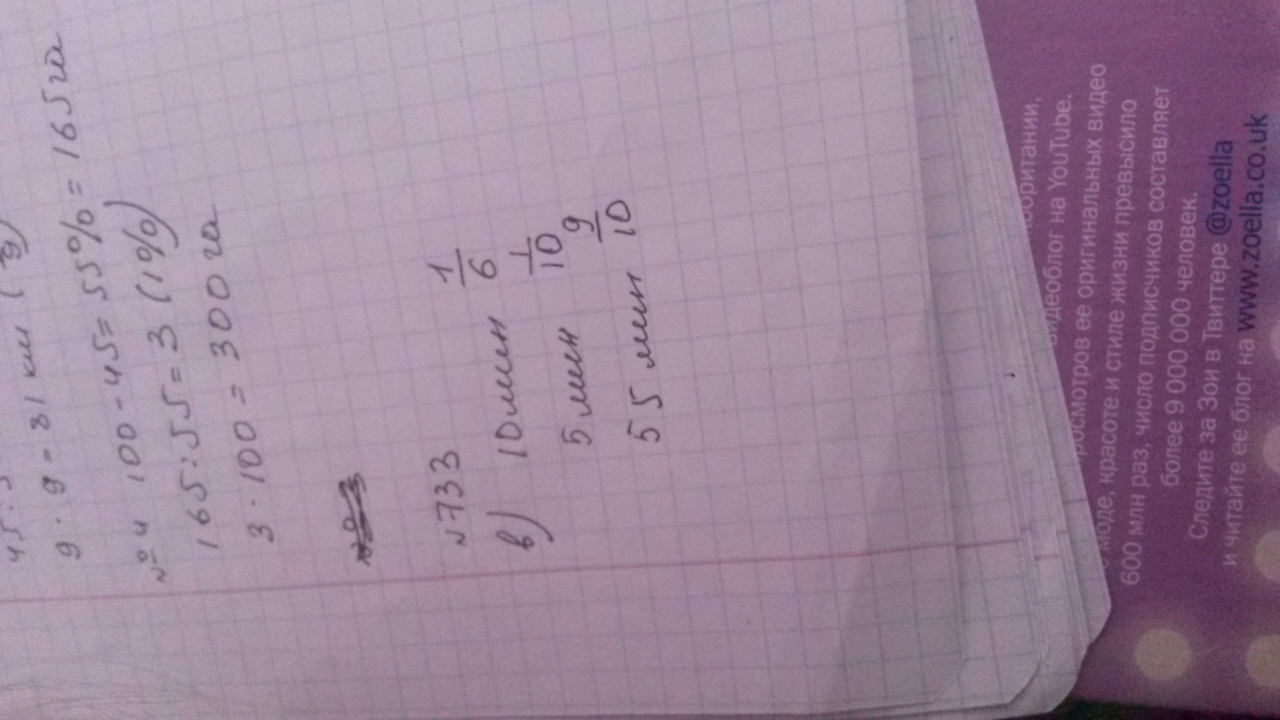 9 · 9 = 81 км
№4 100 - 45 = 55% = 165 га
165 : 55 = 3 (1%)
3 · 100 = 300 га
№733
в) 10 мин 1/6
5 мин 1/10
55 мин 9/10
оригинальных видео
видеоблог на YouTube.
моде, красоте и стиле жизни превысило
600 млн раз, число подписчиков составляет
более 9 000 000 человек.
Следите за Зои в Твиттере @zoella
и читайте ее блог на www.zoella.co.uk